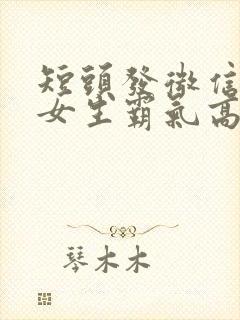 短頭發微信
女生霸氣高
琴木木